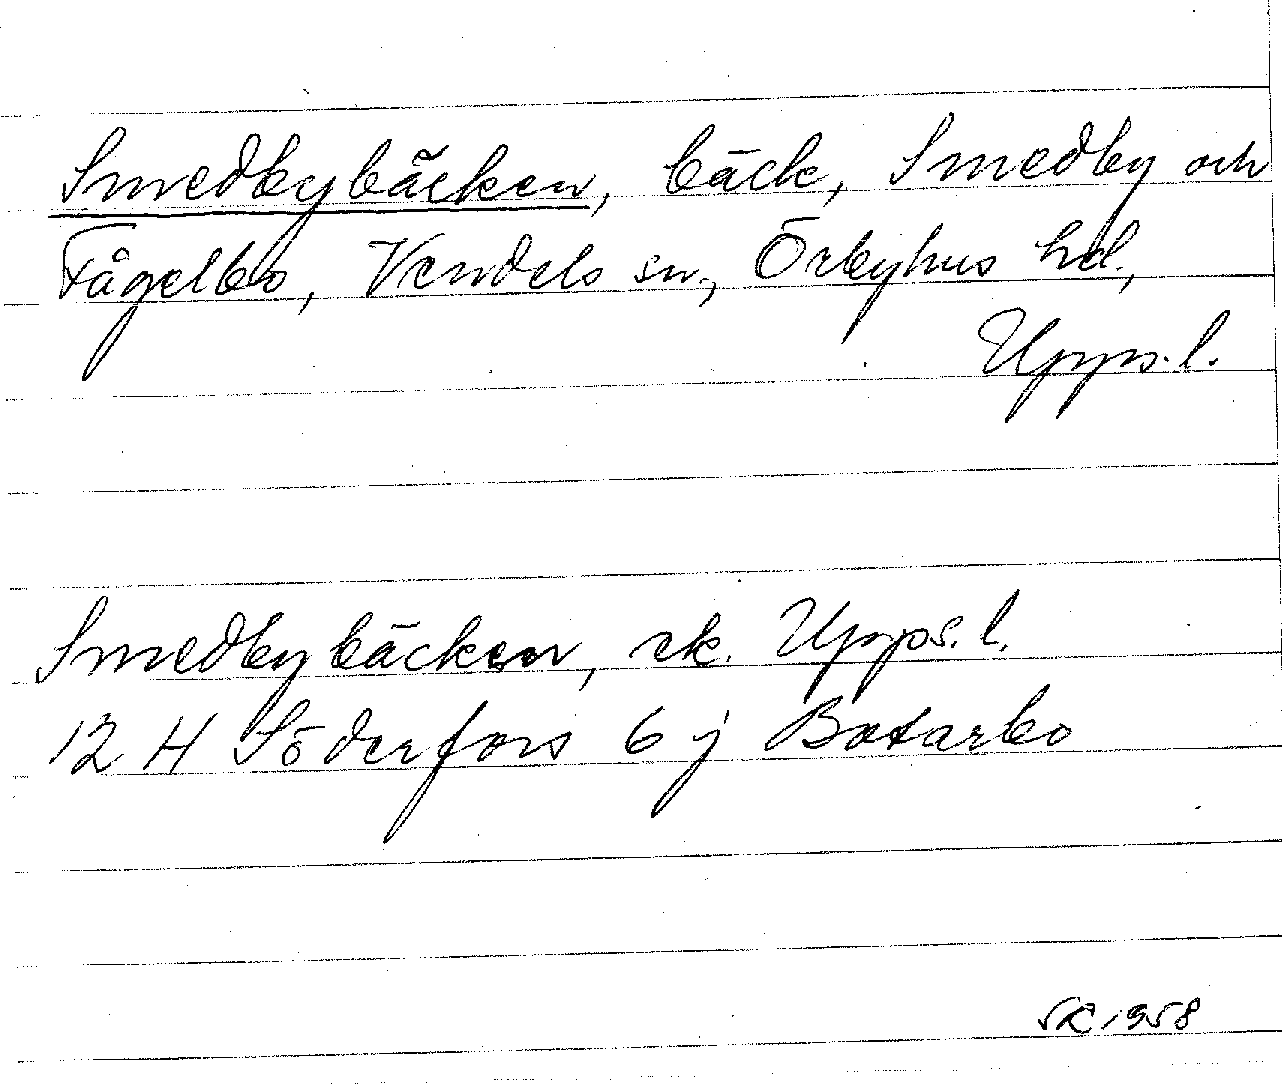 Smedbybäcken, bäck, Smedby och
Fågelbo, Vendels sn, Örbyhus hd,
Upps. l.
Smedbybäcken, ek. Upps. l.
12 H Söderfors 6 j Botarbo
SK 1958